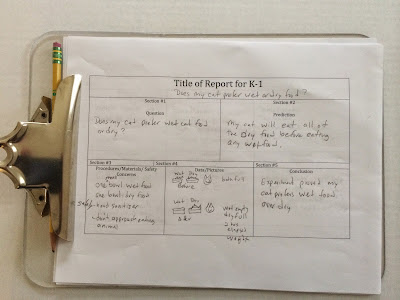 Title of Report for K-1
Does my cat prefer wet or dry food?
Section #1
Question
Does my cat prefer wet cat food
or dry?
Section #2
Prediction
My cat will eat all of
the dry food before eating
any wet food.
Section #3
Procedures/Materials/ Safety
Concerns
one bowl wet food
one bowl dry food
hand sanitizer
don't approach eating
animal
Section #4
Data/Pictures
Wet Dry
Before
both full
Wet Dry
wet empty
dry full
Section #5
Conclusion
Experiment proved my
cat prefers wet food
over dry